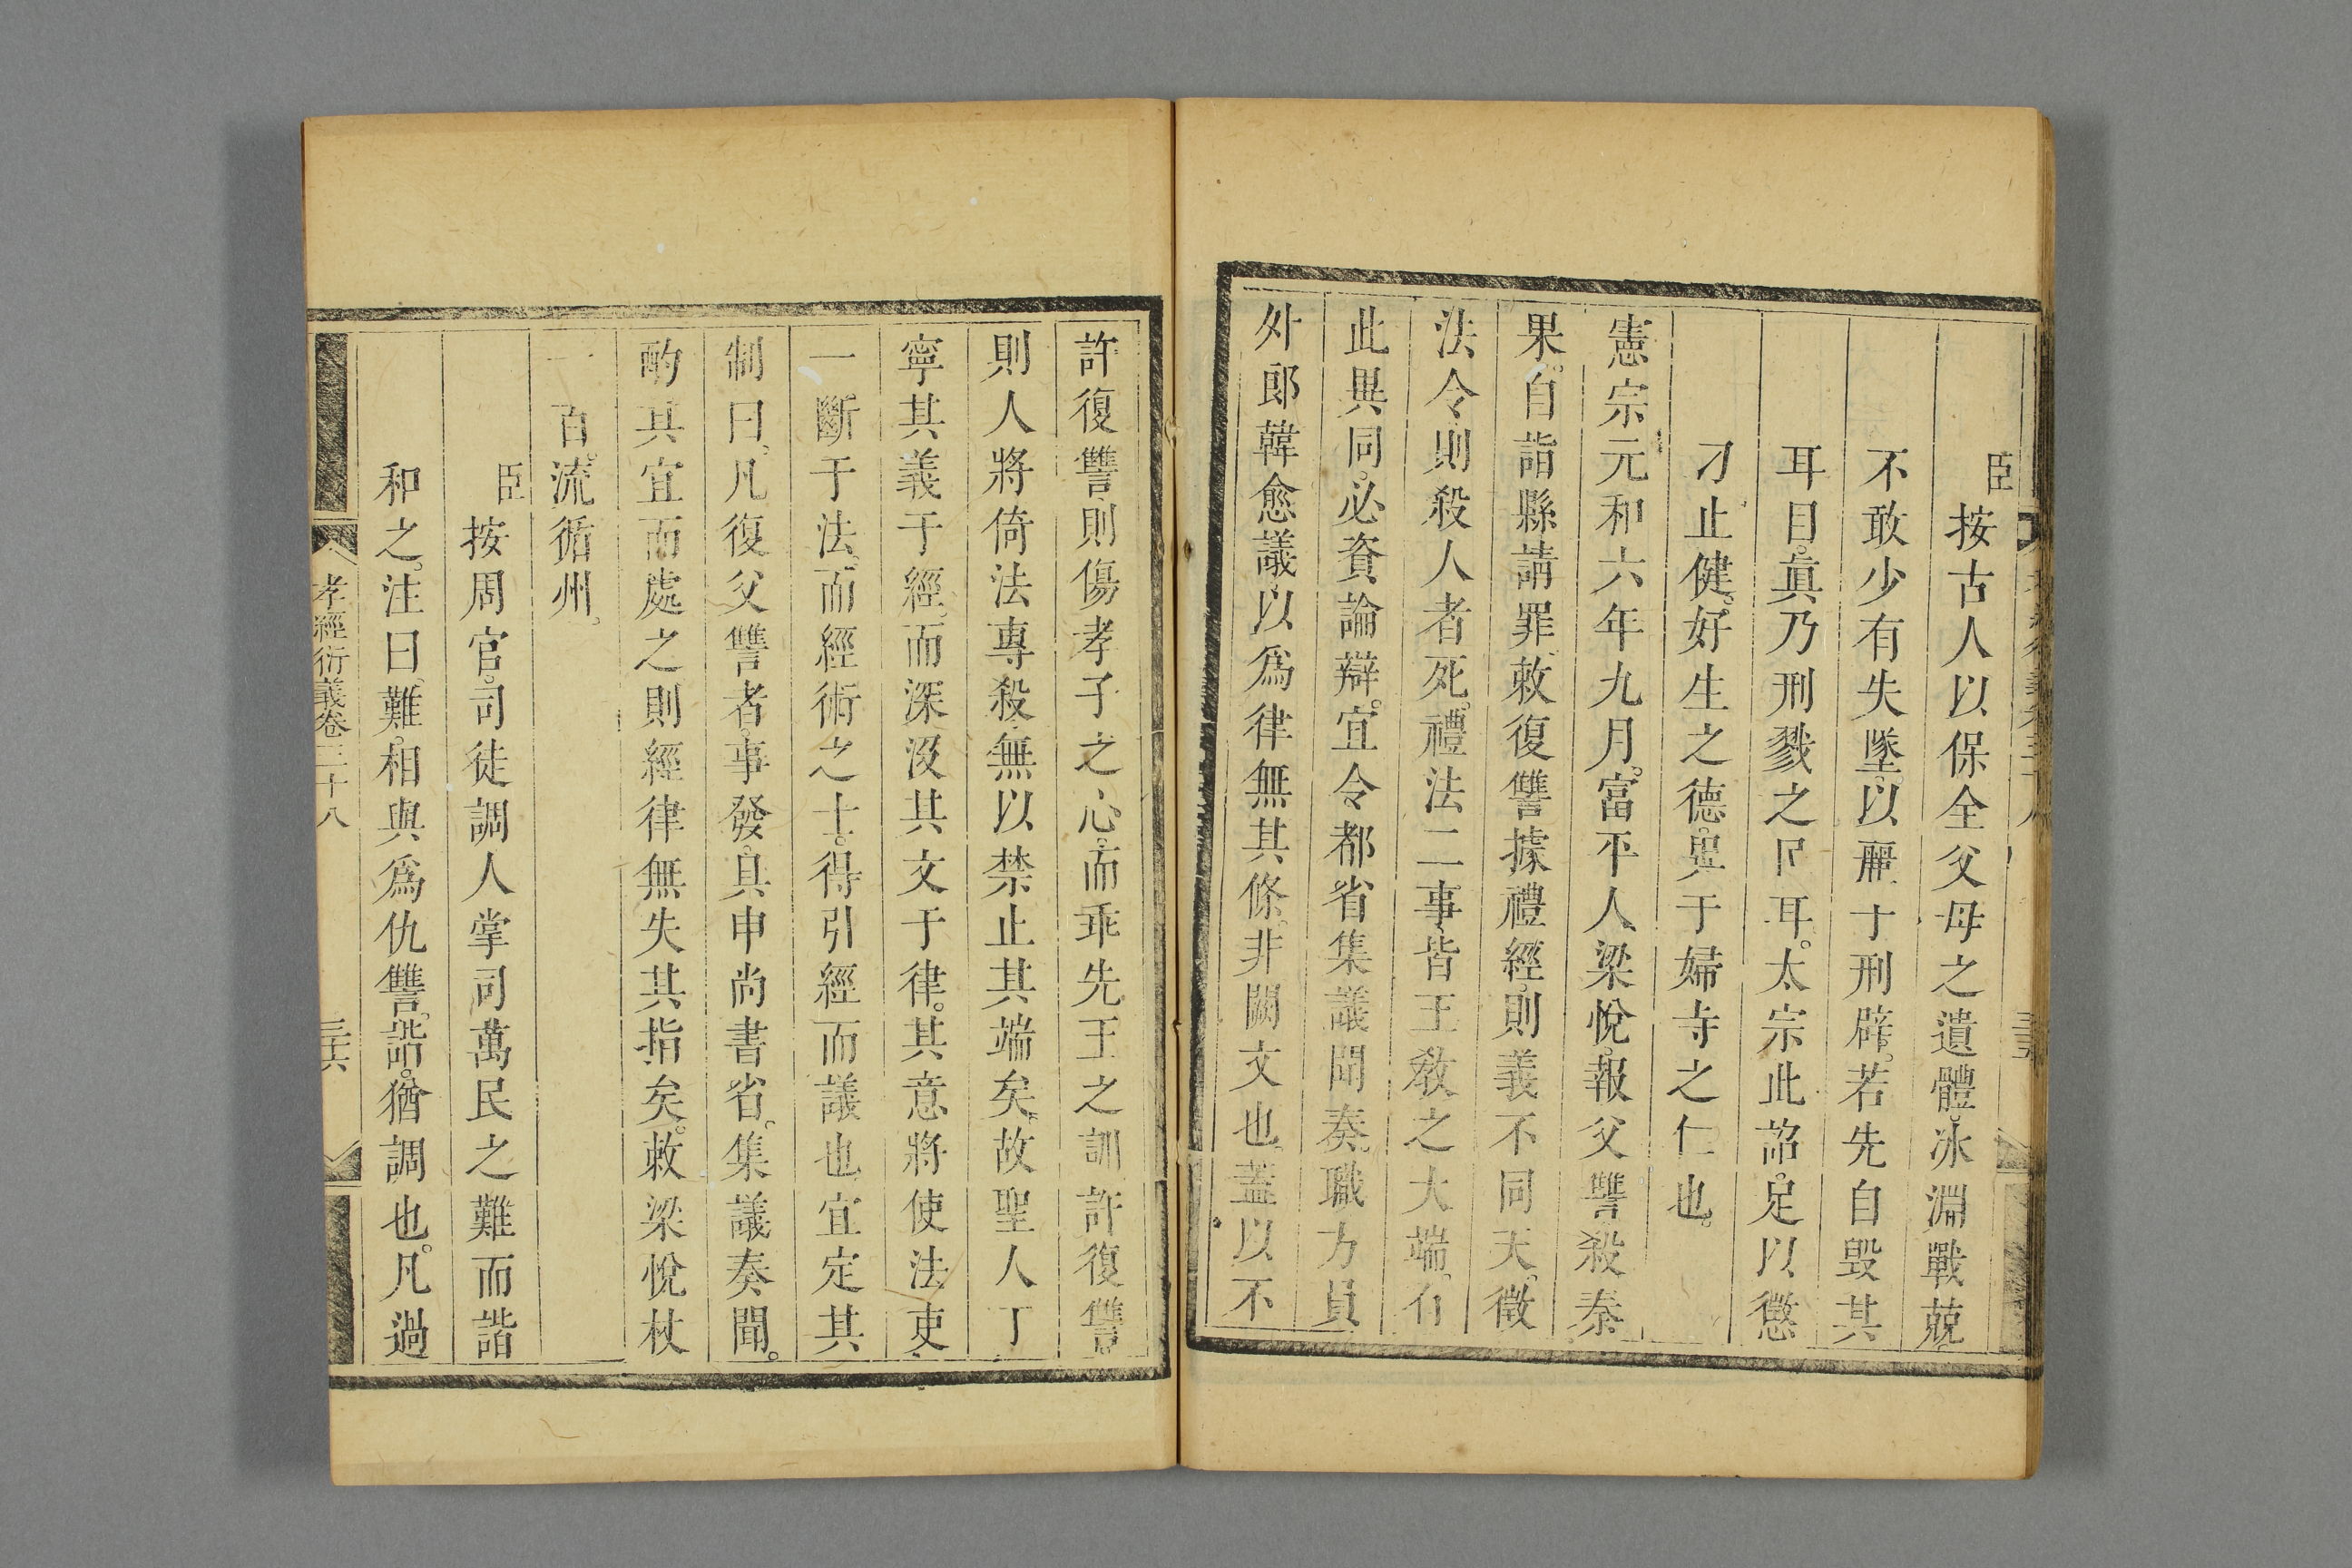 臣按古人以保全父母之遺體。冰淵戰兢
不敢少有失墜。以麗于刑辟。若先自毀其
耳目。眞乃刑戮之民耳。太宗此詔。足以懲
刁止健。好生之德。異于婦寺之仁也。
憲宗元和六年九月。富平人梁悅。報父讐。殺秦
果。自詣縣請罪。敕復讐據禮經。則義不同天。徵
法令。則殺人者死。禮法二事。皆王敎之大端。有
此異同。必資論辯。宜令都省集議聞奏。職方員
外郎韓愈議以爲律無其條。非闕文也。蓋以不
許復讐。則傷孝子之心。而乖先王之訓。許復讐。
則人將倚法專殺。無以禁止其端矣。故聖人丁
寧其義于經。而深沒其文于律。其意將使法吏
一斷于法。而經術之士。得引經而議也。宜定其
制曰。凡復父讐者。事發。具申尚書省。集議奏聞。
酌其宜而處之。則經律無失其指矣。敕梁悅杖
一百。流循州。
臣按周官。司徒調人掌司萬民之難而諧
和之。注曰。難。相與爲仇讐。諧。猶調也。凡過
孝經衍義卷三十八
三六